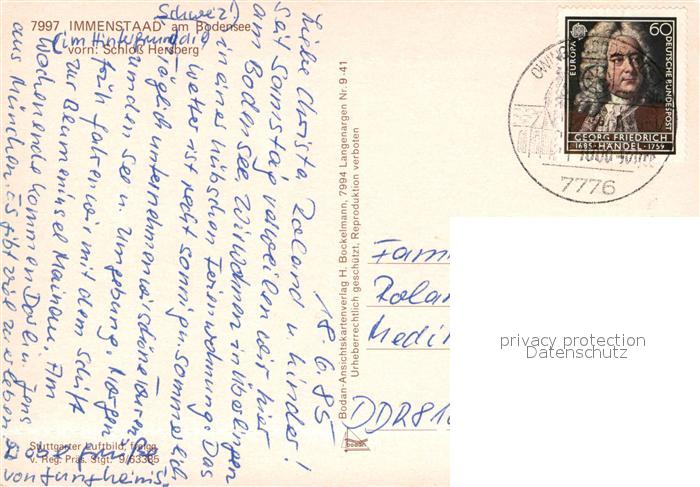 7997 IMMENSTAAD am Bodensee
vorn: Schloß Hersberg
(im Hintergrund die
Schweiz!)
18.6.85
Liebe Christa, Roland u. Kinder!
Seit Sonnstag verweilen wir hier
am Bodensee. Wir wohnen in Überlingen
in einer hübschen Ferienwohnung. Das
Wetter ist recht sonnig u. sommerlich.
Täglich unternehmen wir schöne Touren
um den See u. Umgebung. Morgen
früh fahren wir mit dem Schiff
zur Blumeninsel Mainau. Am
Wochenende kommen u. Jens
aus München. Es gibt viel zu erleben
Grüße
von
Stuttgarter Luftbild, freigg.
v. Reg. Präs. Stgt. 9/63385
Bodan-Ansichtskartenverlag H. Bockelmann, 7994 Langenargen Nr. 9-41
Urheberrechtlich geschützt, Reproduktion verboten
bodan
EUROPA
60
DEUTSCHE BUNDESPOST
GEORG FRIEDRICH
1685 · HÄNDEL · 1759
1000 Jahre
7776
Fam
Rolan
Medi
DDR 81
privacy protection
Datenschutz